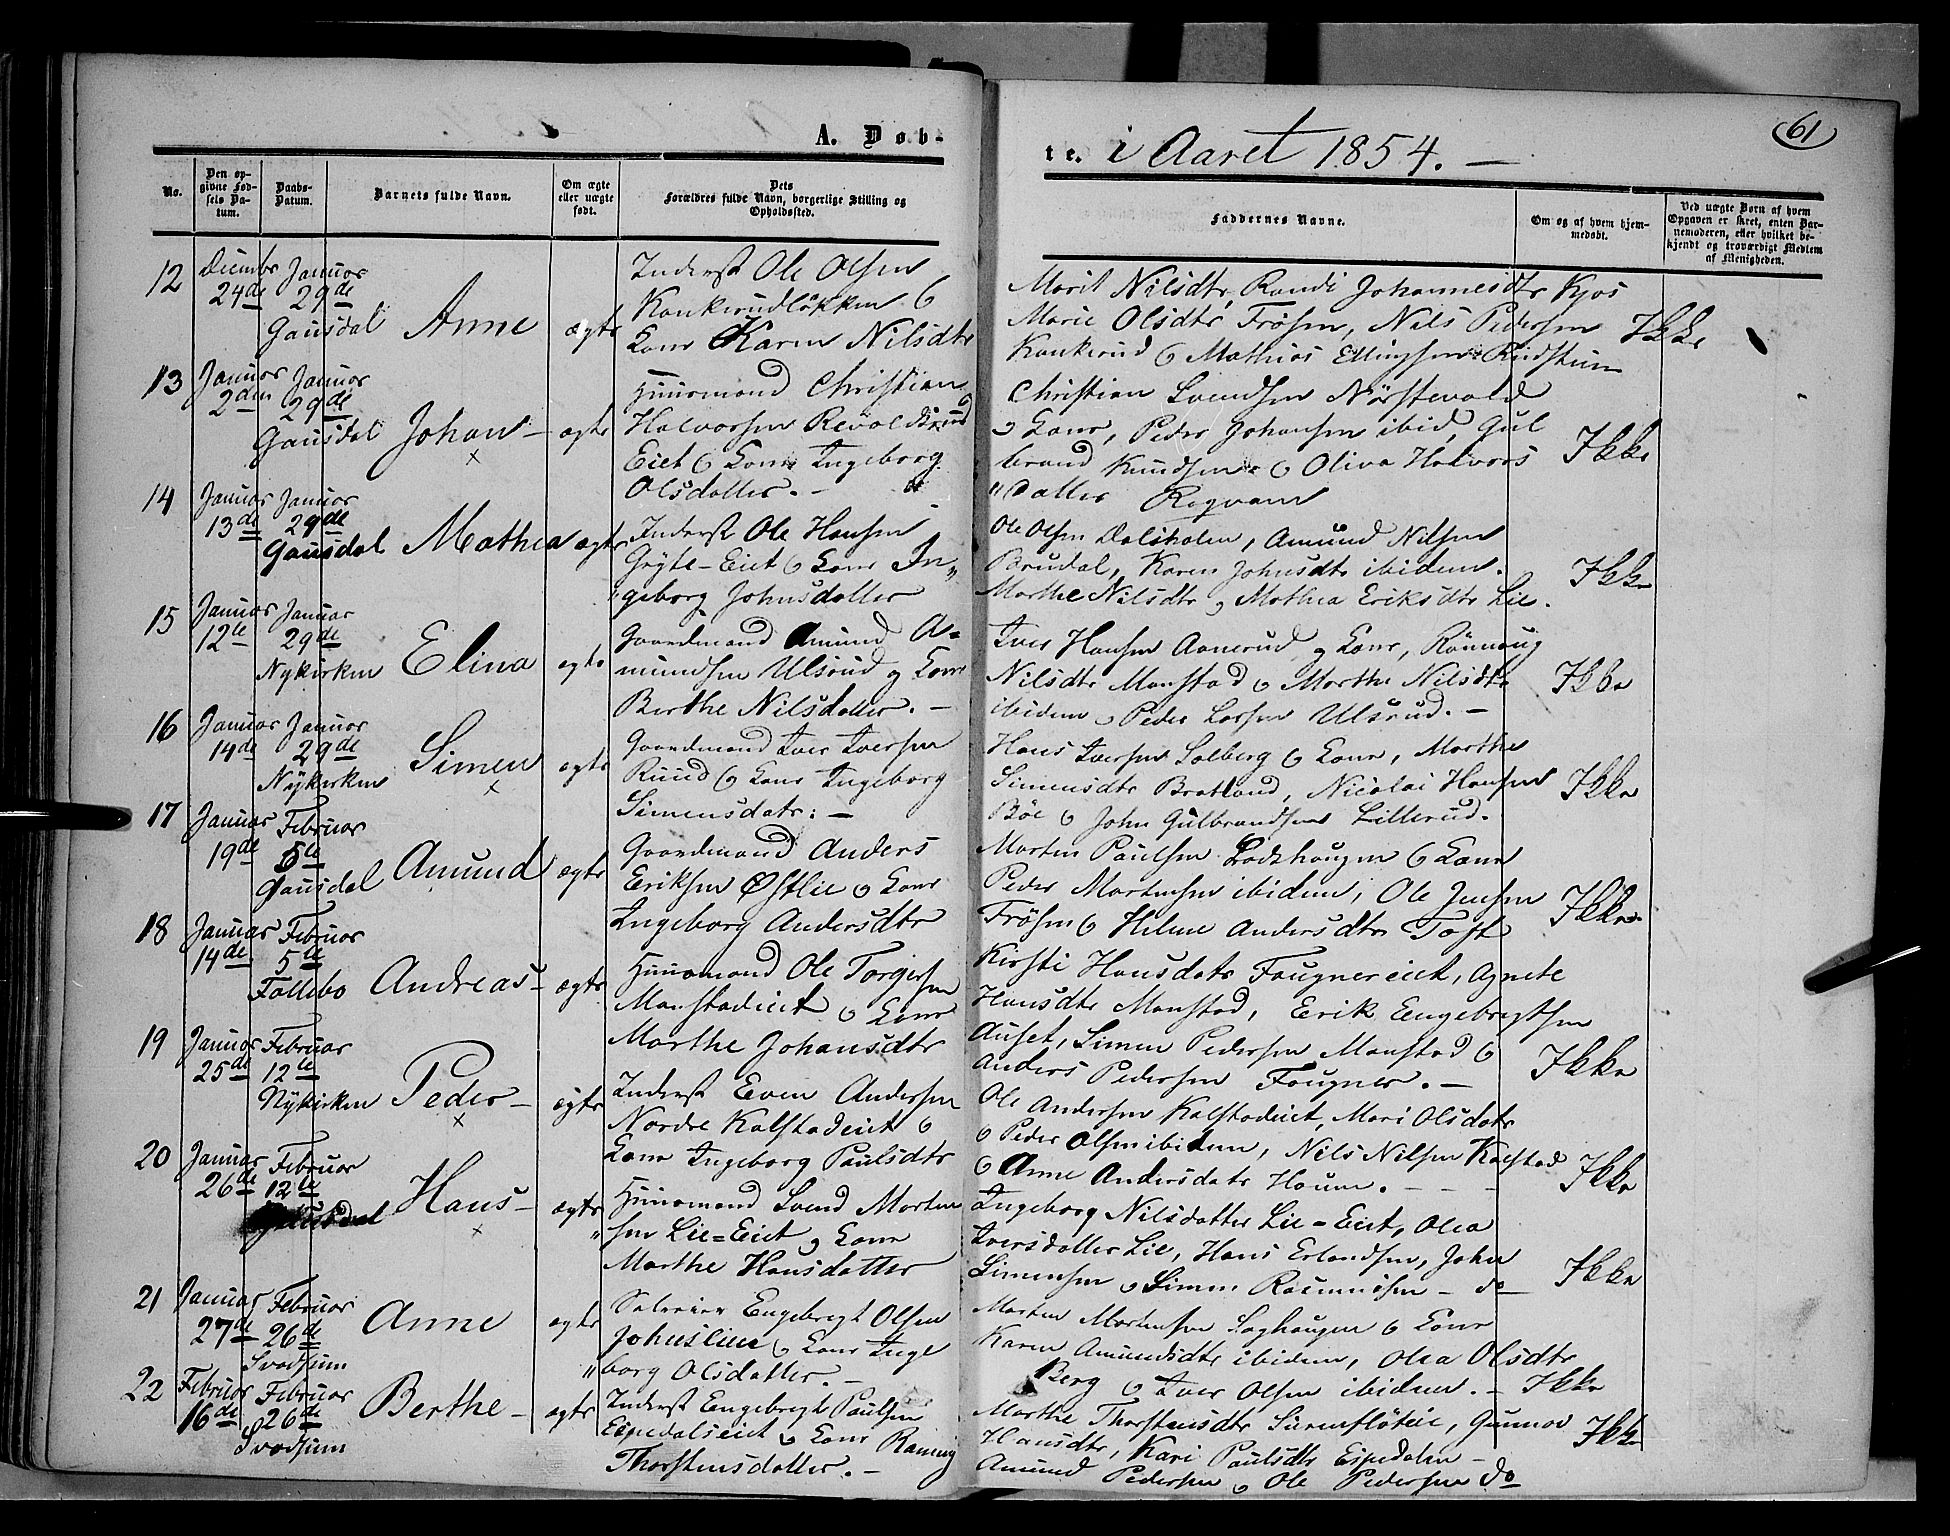 A. Døb-
te. i Aaret 1854. —
61
No.
Den op-
givne Fød-
sels Da-
tum.
Daabs-
Datum.
Barnets fulde Navn.
Om ægte
eller uægte
født.
Dets
Forældres fulde Navn, borgerlige Stilling og
Opholdssted.
Faddernes Navne.
Om og af hvem hjem-
medøbt.
Ved uægte Børn af hvem
Opgaven er skeet, enten Bar-
nemoderen, eller hvilket be-
kjendt og troværdigt Medlem
af Menigheden.
12
Decembr
24de
Januar
29de
Gausdal
Anne
ægte
Inderst Ole Olsen
Kankerudløkken &
Kone Karen Nilsdtr
Marit Nilsdtr, Randi Johannesdtr Kjos
Marie Olsdtr Frøsen, Nils Pedersen
Kankerud & Mathias Ellingsen
Ikke
13
Januar
2den
Januar
29de
Gausdal
Johan —
ægte
Huusmand Christian
Halvorsen
Eiet & Kone Ingeborg
Olsdatter. —
Christian Svendsen Nørstevold
& Kone, Peder Johansen ibid, Gul
brand Knudsen & Oliva Halvors
" datter
Ikke
14
Januar
13de
Januar
29de
Gausdal
Mathea
ægte
Inderst Ole Hansen
Gryte-Eiet & Kone In"
"geborg Johnsdatter
Ole Olsen Dalsholen, Amund Nilsen
Brudal, Karen Johnsdtr ibidem.
Marthe Nilsdtr & Mathea Eriksdtr Lie.
Ikke
15
Januar
12te
Januar
29de
Nykirken
Elina
ægte
Gaardmand Amund A=
mundsen Ulsrud og Kone
Berthe Nilsdatter. —
Iver Hansen Aanerud & Kone, Rønnaug
Nilsdtr Manstad & Marthe Nilsdtr
ibidem & Peder Larsen Ulsrud. —
Ikke
16
Januar
14de
Januar
29de
Nykirken
Simen
ægte
Gaardmand Iver Iversen
Ruud & Kone Ingeborg
Simensdatr: —
Hans Iversen Solberg & Kone, Marthe
Simensdtr Bratland, Nicolai Hansen
Böe & John Gulbrandsen Lillerud.
Ikke
17
Januar
19de
Februar
5te
Gausdal
Amund
ægte
Gaardmand Anders
Eriksen Østlie & Kone
Ingeborg Andersdtr
Morten Paulsen & Kone
Peder Mortensen ibidem, Ole Jensen
Frøsen & Helene Andersdtr Toft
Ikke
18
Januar
14de
Februar
5te
Follebo
Andreas —
ægte
Huusmand Ole Torgersen
Manstadeiet & Kone
Marthe Johansdtr
Kirsti Hansdatr Fougnereiet, Agnete
Hansdtr Manstad, Eerik Engebregtsen
Auset, Simen Pedersen Manstad &
Anders Pedersen Fougner. —
Ikke
19
Januar
25de
Februar
12te
Nykirken
Peder —
ægte
Inderst Even Andersen
Nordre Kalstadeiet &
Kone Ingeborg Paulsdtr
Ole Andersen Kalstadeiet, Mari Olsdatr
& Peder Olsen ibidem, Nils Nilsen Kalstad
& Anne Andersdatr Houm. — — —
Ikke
20
Januar
26de
Februar
12te
Gausdal
Hans —
ægte
Huusmand Svend Morten
"sen Lie=Eiet & Kone
Marthe Hansdatter
Ingeborg Nilsdatter Lie=Eiet, Olea
Iversdatter Lie, Hans Erlandsen, John
Simensen & Simen Rasmusen — do
Ikke
21
Januar
27de
Februar
26de
Svadsum
Anne
ægte
Selveier Engebregt Olsen
Johnslien & Kone Inge
"borg Olsdatter. —
Morten Mortensen Saghaugen & Kone
Karen Amundsdtr ibidem, Olea Olsdtr
Berg & Iver Olsen ibidem. —
Ikke
22
Februar
16de
Februar
26de
Svadsum
Berthe —
ægte
Inderst Engebregt Paulsen
Espedalseiet & Kone
Thorstensdatter. —
Marthe Thorstensdtr, Gunnor
Hansdtr, Kari Paulsdtr Espedalen —
Amund Pedersen & Ole Pedersen do
Ikke